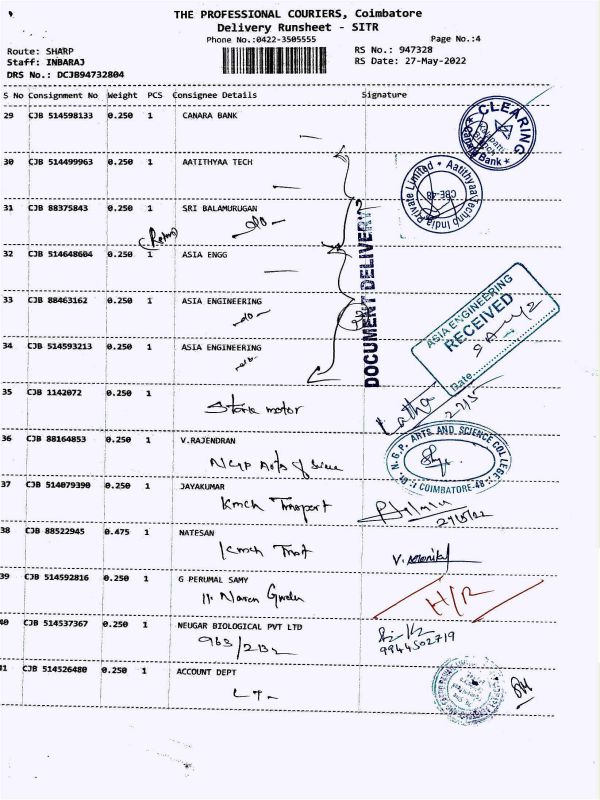 THE PROFESSIONAL COURIERS, Coimbatore
Delivery Runsheet - SITR
Phone No.:0422-3505555 Page No.:4
Route: SHARP RS No.: 947328
Staff: INBARAJ RS Date: 27-May-2022
DRS No.: DCJB94732804
S No Consignment No Weight PCS Consignee Details Signature
29 CJB 514598133 0.250 1 CANARA BANK
CLEARING
Canara Bank
30 CJB 514499963 0.250 1 AATITHYAA TECH
Aatithyaa Techno India Private Limited
CBE-48
31 CJB 88375843 0.250 1 SRI BALAMURUGAN
32 CJB 514648604 0.250 1 ASIA ENGG
DOCUMENT DELIVERY
33 CJB 88463162 0.250 1 ASIA ENGINEERING
ASIA ENGINEERING
RECEIVED
Date
34 CJB 514593213 0.250 1 ASIA ENGINEERING
35 CJB 1142072 0.250 1
motor
Latha
27/5
36 CJB 88164853 0.250 1 V.RAJENDRAN
NGP Arts of
Dr. N.G.P. ARTS AND SCIENCE COLLEGE
COIMBATORE-48
37 CJB 514079390 0.250 1 JAYAKUMAR
kmch Transport
38 CJB 88522945 0.475 1 NATESAN
kmch
39 CJB 514592816 0.250 1 G PERUMAL SAMY
H/R
40 CJB 514537367 0.250 1 NEUGAR BIOLOGICAL PVT LTD
9944502719
41 CJB 514526480 0.250 1 ACCOUNT DEPT